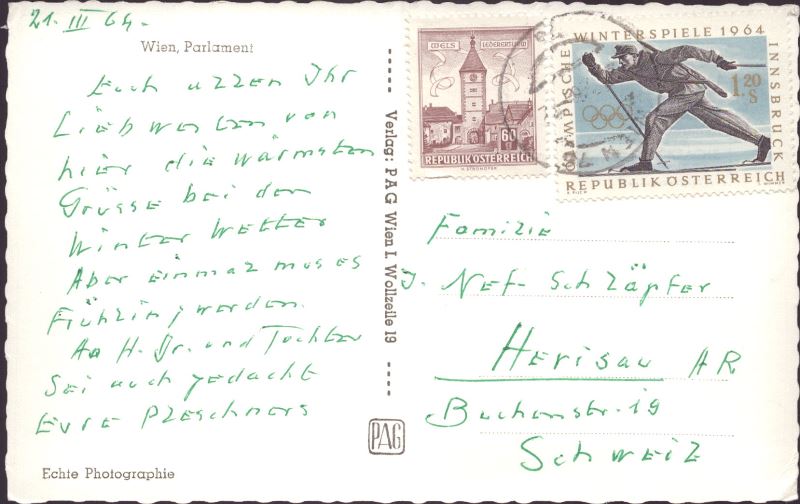 21. III 64.
Wien, Parlament
Euch allen Ihr
Liebwerten von
hier die wärmsten
Grüsse bei dem
Winter Wetter
Aber einmal mus es
Frühling werden.
An H. Dr. und Tochter
Sei auch gedacht
Eure Pleschners
Echte Photographie
Verlag: PAG Wien I. Wollzeile 19
PAG
WELS LEDERERTURM
60
REPUBLIK ÖSTERREICH
OLYMPISCHE WINTERSPIELE 1964 INNSBRUCK
1.20 S
REPUBLIK ÖSTERREICH
Familie
J. Nef-Schläpfer
Herisau AR
Buchenstr. 19
Schweiz